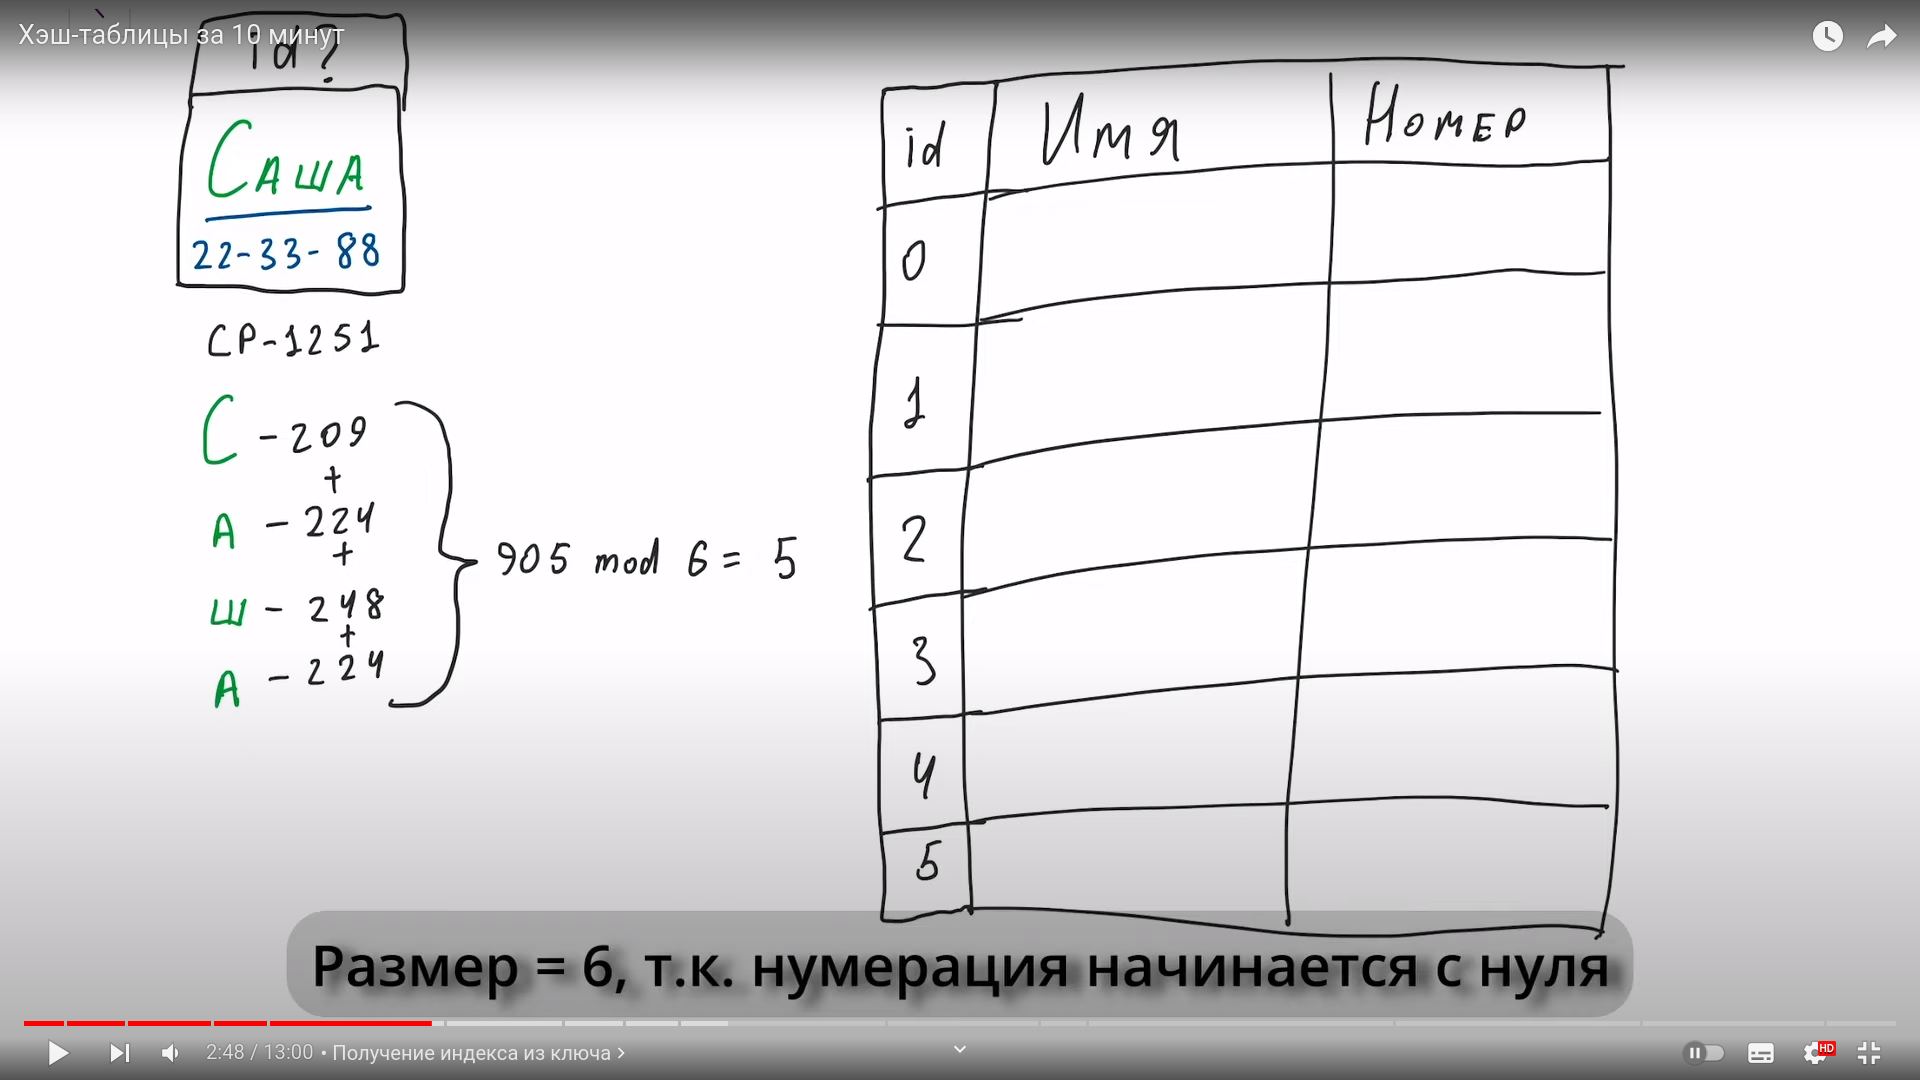 Хэш-таблицы за 10 минут
id?
Саша
22-33-88
CP-1251
С - 209
+
А - 224
+
Ш - 248
+
А - 224
905 mod 6 = 5
id Имя Номер
0
1
2
3
4
5
Размер = 6, т.к. нумерация начинается с нуля
2:48 / 13:00 • Получение индекса из ключа
HD